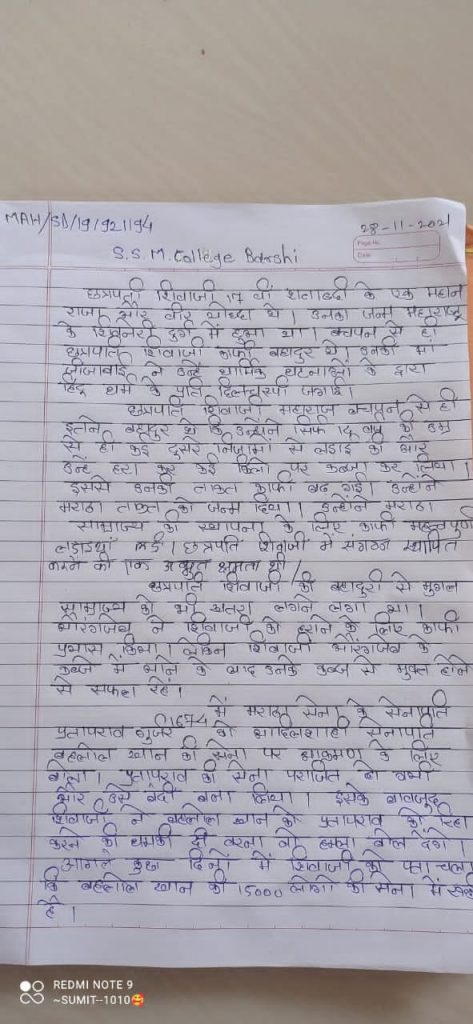 MAH/SD/19/921194
28-11-2021
Page No.
Date
S.S.M. College Barshi
छत्रपती शिवाजी 17 वी शताब्दी के एक महान
राजा और वीर योध्दा थे। उनका जन्म महाराष्ट्र
के शिवनेरी दुर्ग में हुआ था। बचपन से ही
छत्रपति शिवाजी काफी बहादुर थे उनकी माँ
जीजाबाई ने उन्हें धार्मिक घटनाओं के द्वारा
हिंदू धर्म के प्रति दिलचस्पी जगाई।
छत्रपति शिवाजी महाराज बचपन से ही
इतने बहादुर थे कि उन्होंने सिर्फ वर्ष की उम्र
से ही कई दुसरे निजामों से लडाई की और
उन्हें हरा कर कई किलो पर कब्जा कर लिया।
इससे उनकी ताकत काफी बढ गई। उन्होंने
मराठा ताकत को जन्म दिया। उन्होंने मराठा
साम्राज्य की स्थापना के लिए काफी महत्वपुर्ण
लडाइयां लडी। छत्रपति शिवाजी में संगठन स्थापित
करने की एक अद्भुत क्षमता थी।
छत्रपति शिवाजी की बहादुरी से मुगल
साम्राज्य को भी खतरा लगने लगा था।
औरंगजेब ने शिवाजी को हराने के लिए काफी
प्रयास किया। लेकिन शिवाजी औरंगजेब के
कब्जे में आने के बाद उनके कब्जे से मुक्त होने
से सफल रहे।
1674 में मराठा सेना के सेनापति
प्रतापराव गुजर को आदिलशाही सेनापति
बहलोल खान की सेना पर आक्रमण के लिए
बोला। प्रतापराव की सेना पराजित हो गयी
और उसे बंदी बना लिया। इसके बावजूद
शिवाजी ने बहलोल खान को प्रतापराव को रिहा
करने की धमकी दी वरना वो हमला बोल देंगे।
अगले कुछ दिनों में शिवाजी को पता चला
कि बहलोल खान की 15000 लोगो की सेना में
है।
REDMI NOTE 9
~SUMIT--1010🥰